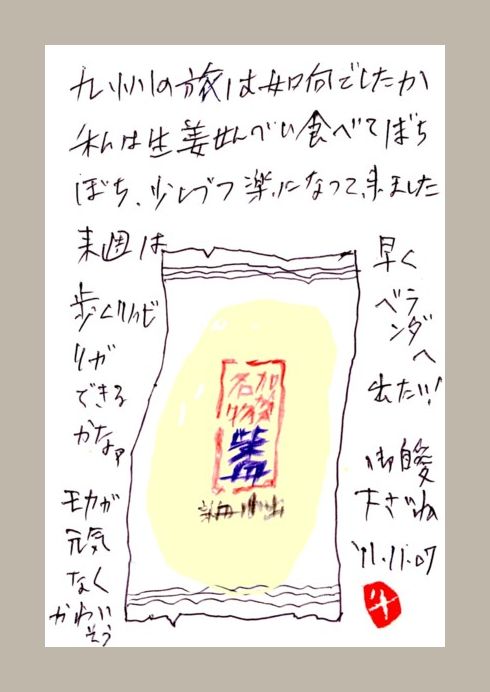 九州の旅は如何でしたか
私は生姜せんべい食べてぼち
ぼち、少しづつ楽になって来ました
来週は
歩くリハビ
リが
できる
かなァ
モカが
元気
なく
かわい
そう
早く
ベラ
ンダへ
出たい!
御自愛
下さいね
'11.11.07
名物
柴舟